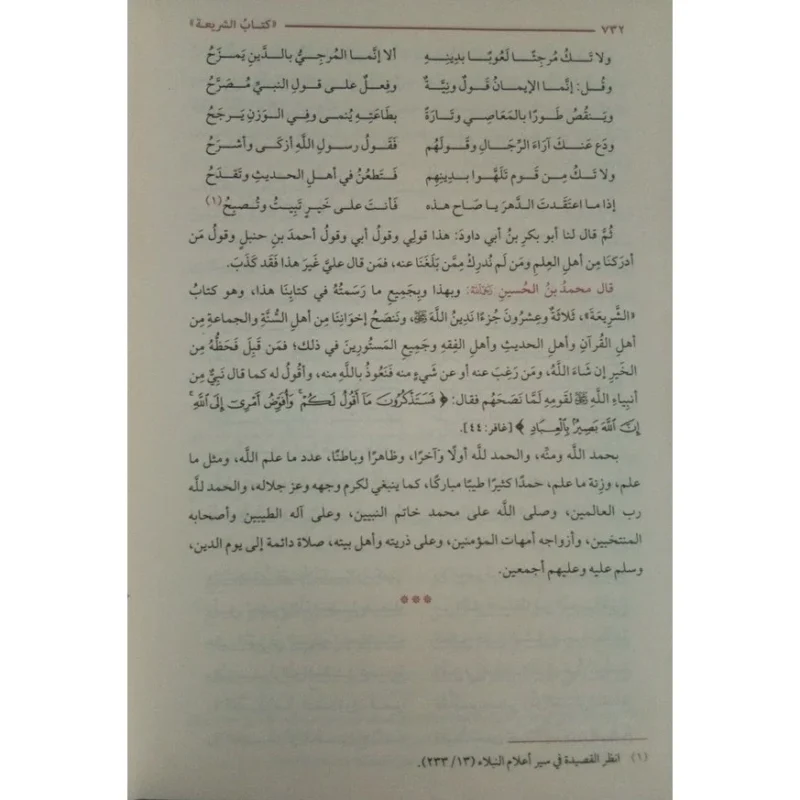 ٧٣٢ «كتابُ الشريعة»
ولا تَـكُ مُرجِئًا لَعُوبًـا بدِينِـهِ ألا إنَّمـا المُرجِـيُّ بـالدِّينِ يَمـزَحُ
وقُل: إنَّمـا الإيمـانُ قَـولٌ ونِيَّـةٌ وفِعـلٌ علـى قـولِ النبـيِّ مُصَـرَّحُ
ويَـنقُصُ طَـورًا بالمَعَاصِي وتَـارَةً بِطَاعَتِـهِ يُنمـى وفِـي الـوَزنِ يَـرجَحُ
ودَع عَنـكَ آرَاءَ الرِّجَـالِ وقَـولَهُم فَقَـولُ رسـولِ اللَّهِ أزكَـى وأشـرَحُ
ولا تَـكُ مِـن قَـومٍ تَلَهَّـوا بـدِينِهِم فَـتَطعُنُ في أهـلِ الحـديثِ وتَقـدَحُ
إذا ما اعتَقَدتَ الدَّهرَ يا صَاحِ هذه فَأنـتَ علـى خَيـرٍ تَبِيـتُ وتُـصبِحُ(١)
ثُمَّ قال لنا أبو بكرِ بنُ أبي داودَ: هذا قولِي وقولُ أبي وقولُ أحمدَ بنِ حنبلٍ وقولُ مَن
أدرَكنَا مِن أهلِ العِلمِ ومَن لَم نُدرِك مِمَّن بَلَغَنَا عنه، فمَن قال عليَّ غَيرَ هذا فَقَد كَذَبَ.
قال محمدُ بنُ الحُسينِ رَحِمَهُ اللَّهُ: وبهذا وبِجَمِيعِ ما رَسَمتُهُ في كتابِنَا هذا، وهو كتابُ
«الشَّرِيعَةِ»، ثَلاثَةٌ وعِشرُونَ جُزءًا نَدِينُ اللَّهَ ﷻ، ونَنصَحُ إخوَانِنَا مِن أهلِ السُّنَّةِ والجماعةِ مِن
أهلِ القُرآنِ وأهلِ الحديثِ وأهلِ الفِقهِ وجَمِيعِ المَستُورِينَ في ذلك؛ فمَن قَبِلَ فَحَظُّهُ مِن
الخَيرِ إن شَاءَ اللَّهُ، ومَن رَغِبَ عنه أو عن شَيءٍ منه فنَعُوذُ باللَّهِ منه، وأقُولُ له كما قال نَبِيٌّ مِن
أنبِيَاءِ اللَّهِ ﷺ لقَومِهِ لَمَّا نَصَحَهُم فقال: ﴿ فَسَتَذْكُرُونَ مَآ أَقُولُ لَكُمْ ۚ وَأُفَوِّضُ أَمْرِىٓ إِلَى ٱللَّهِ ۚ
إِنَّ ٱللَّهَ بَصِيرٌۢ بِٱلْعِبَادِ ﴾ [غافر: ٤٤].
بحمد اللَّه ومنِّه، والحمد للَّه أولًا وآخرًا، وظاهرًا وباطنًا، عدد ما علم اللَّه، ومثل ما
علم، وزِنة ما علم، حمدًا كثيرًا طيبًا مباركًا، كما ينبغي لكرم وجهه وعز جلاله، والحمد للَّه
رب العالمين، وصلى اللَّه على محمد خاتم النبيين، وعلى آله الطيبين وأصحابه
المنتخبين، وأزواجه أمهات المؤمنين، وعلى ذريته وأهل بيته، صلاة دائمة إلى يوم الدين،
وسلم عليه وعليهم أجمعين.
(١) انظر القصيدة في سير أعلام النبلاء (١٣/ ٢٣٣).